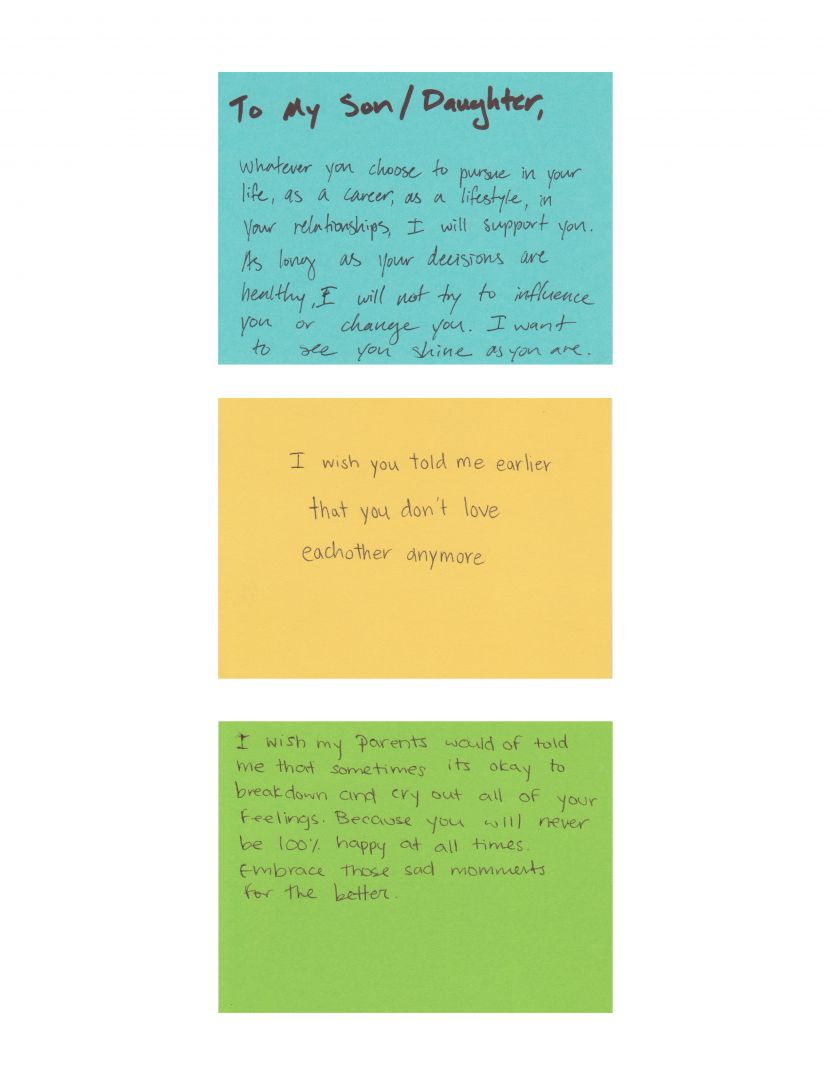 To My Son/Daughter,
Whatever you choose to pursue in your
life, as a career, as a lifestyle, in
your relationships, I will support you.
As long as your decisions are
healthy, I will not try to influence
you or change you. I want
to see you shine as you are.
I wish you told me earlier
that you don't love
eachother anymore
I wish my parents would of told
me that sometimes its okay to
breakdown and cry out all of your
feelings. Because you will never
be 100% happy at all times.
Embrace those sad momments
for the better.